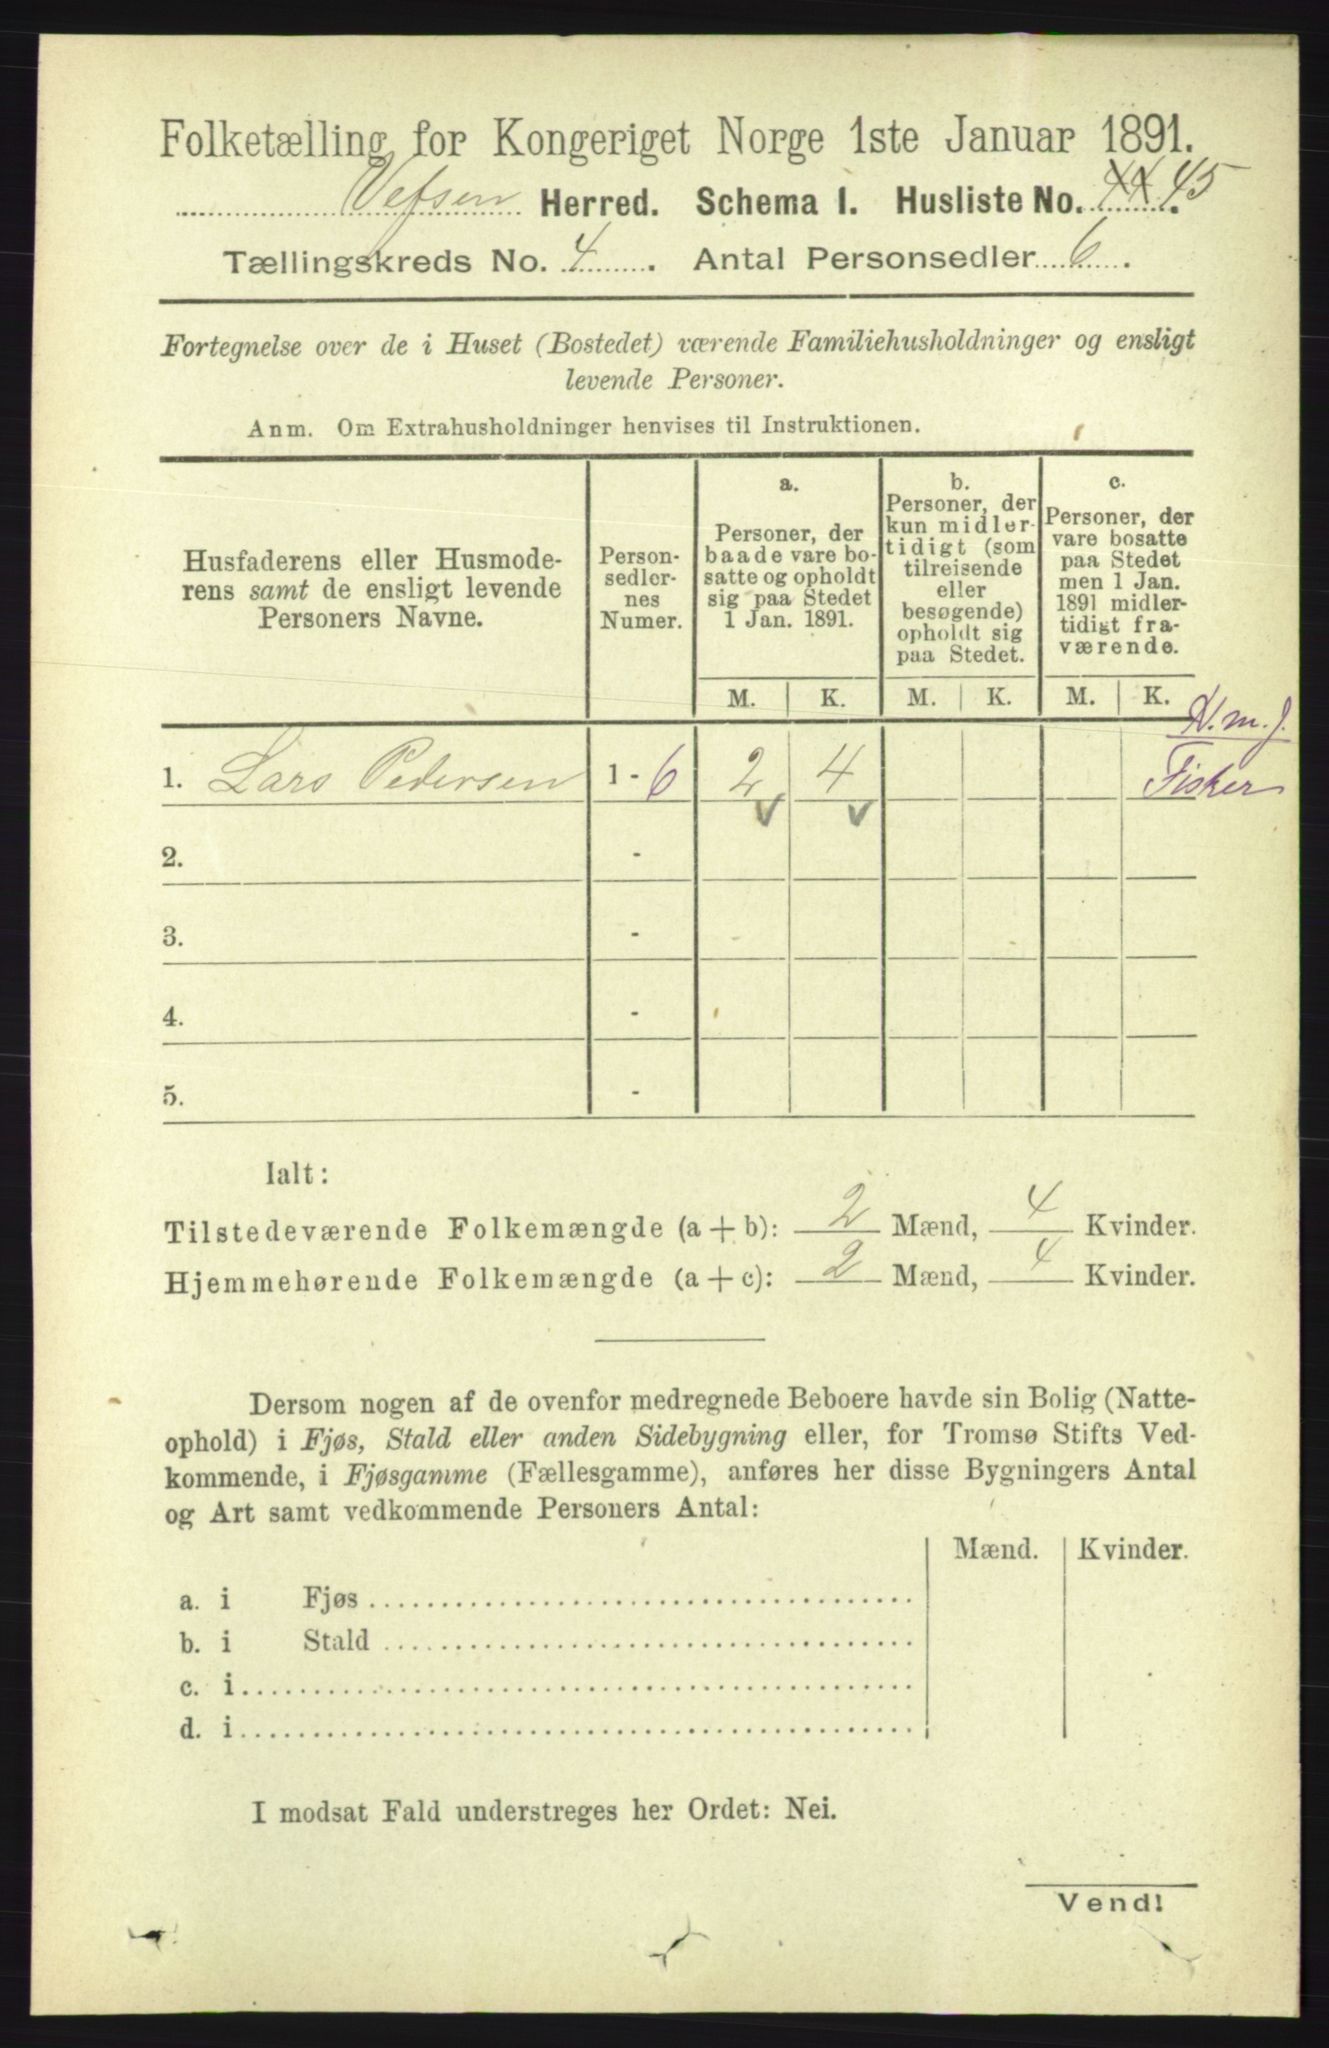 Folketælling for Kongeriget Norge 1ste Januar 1891.
Vefsen Herred. Schema I. Husliste No. 44 45.
Tællingskreds No. 4. Antal Personsedler 6.
Fortegnelse over de i Huset (Bostedet) værende Familiehusholdninger og ensligt
levende Personer.
Anm. Om Extrahusholdninger henvises til Instruktionen.
Husfaderens eller Husmode-
rens samt de ensligt levende
Personers Navne.
Person-
sedler-
nes
Numer.
a.
Personer, der
baade vare bo-
satte og opholdt
sig paa Stedet
1 Jan. 1891.
b.
Personer, der
kun midler-
tidigt (som
tilreisende
eller
besøgende)
opholdt sig
paa Stedet.
c.
Personer, der
vare bosatte
paa Stedet
men 1 Jan.
1891 midler-
tidigt fra-
værende.
M. K. M. K. M. K.
N. m. J.
1. Lars Pedersen 1 - 6 2 4 Fisker
2. -
3. -
4. -
5. -
Ialt:
Tilstedeværende Folkemængde (a + b): 2 Mænd, 4 Kvinder.
Hjemmehørende Folkemængde (a + c): 2 Mænd, 4 Kvinder.
Dersom nogen af de ovenfor medregnede Beboere havde sin Bolig (Natte-
ophold) i Fjøs, Stald eller anden Sidebygning eller, for Tromsø Stifts Ved-
kommende, i Fjøsgamme (Fællesgamme), anføres her disse Bygningers Antal
og Art samt vedkommende Personers Antal:
Mænd. Kvinder.
a. i Fjøs
b. i Stald
c. i
d. i
I modsat Fald understreges her Ordet: Nei.
Vend!